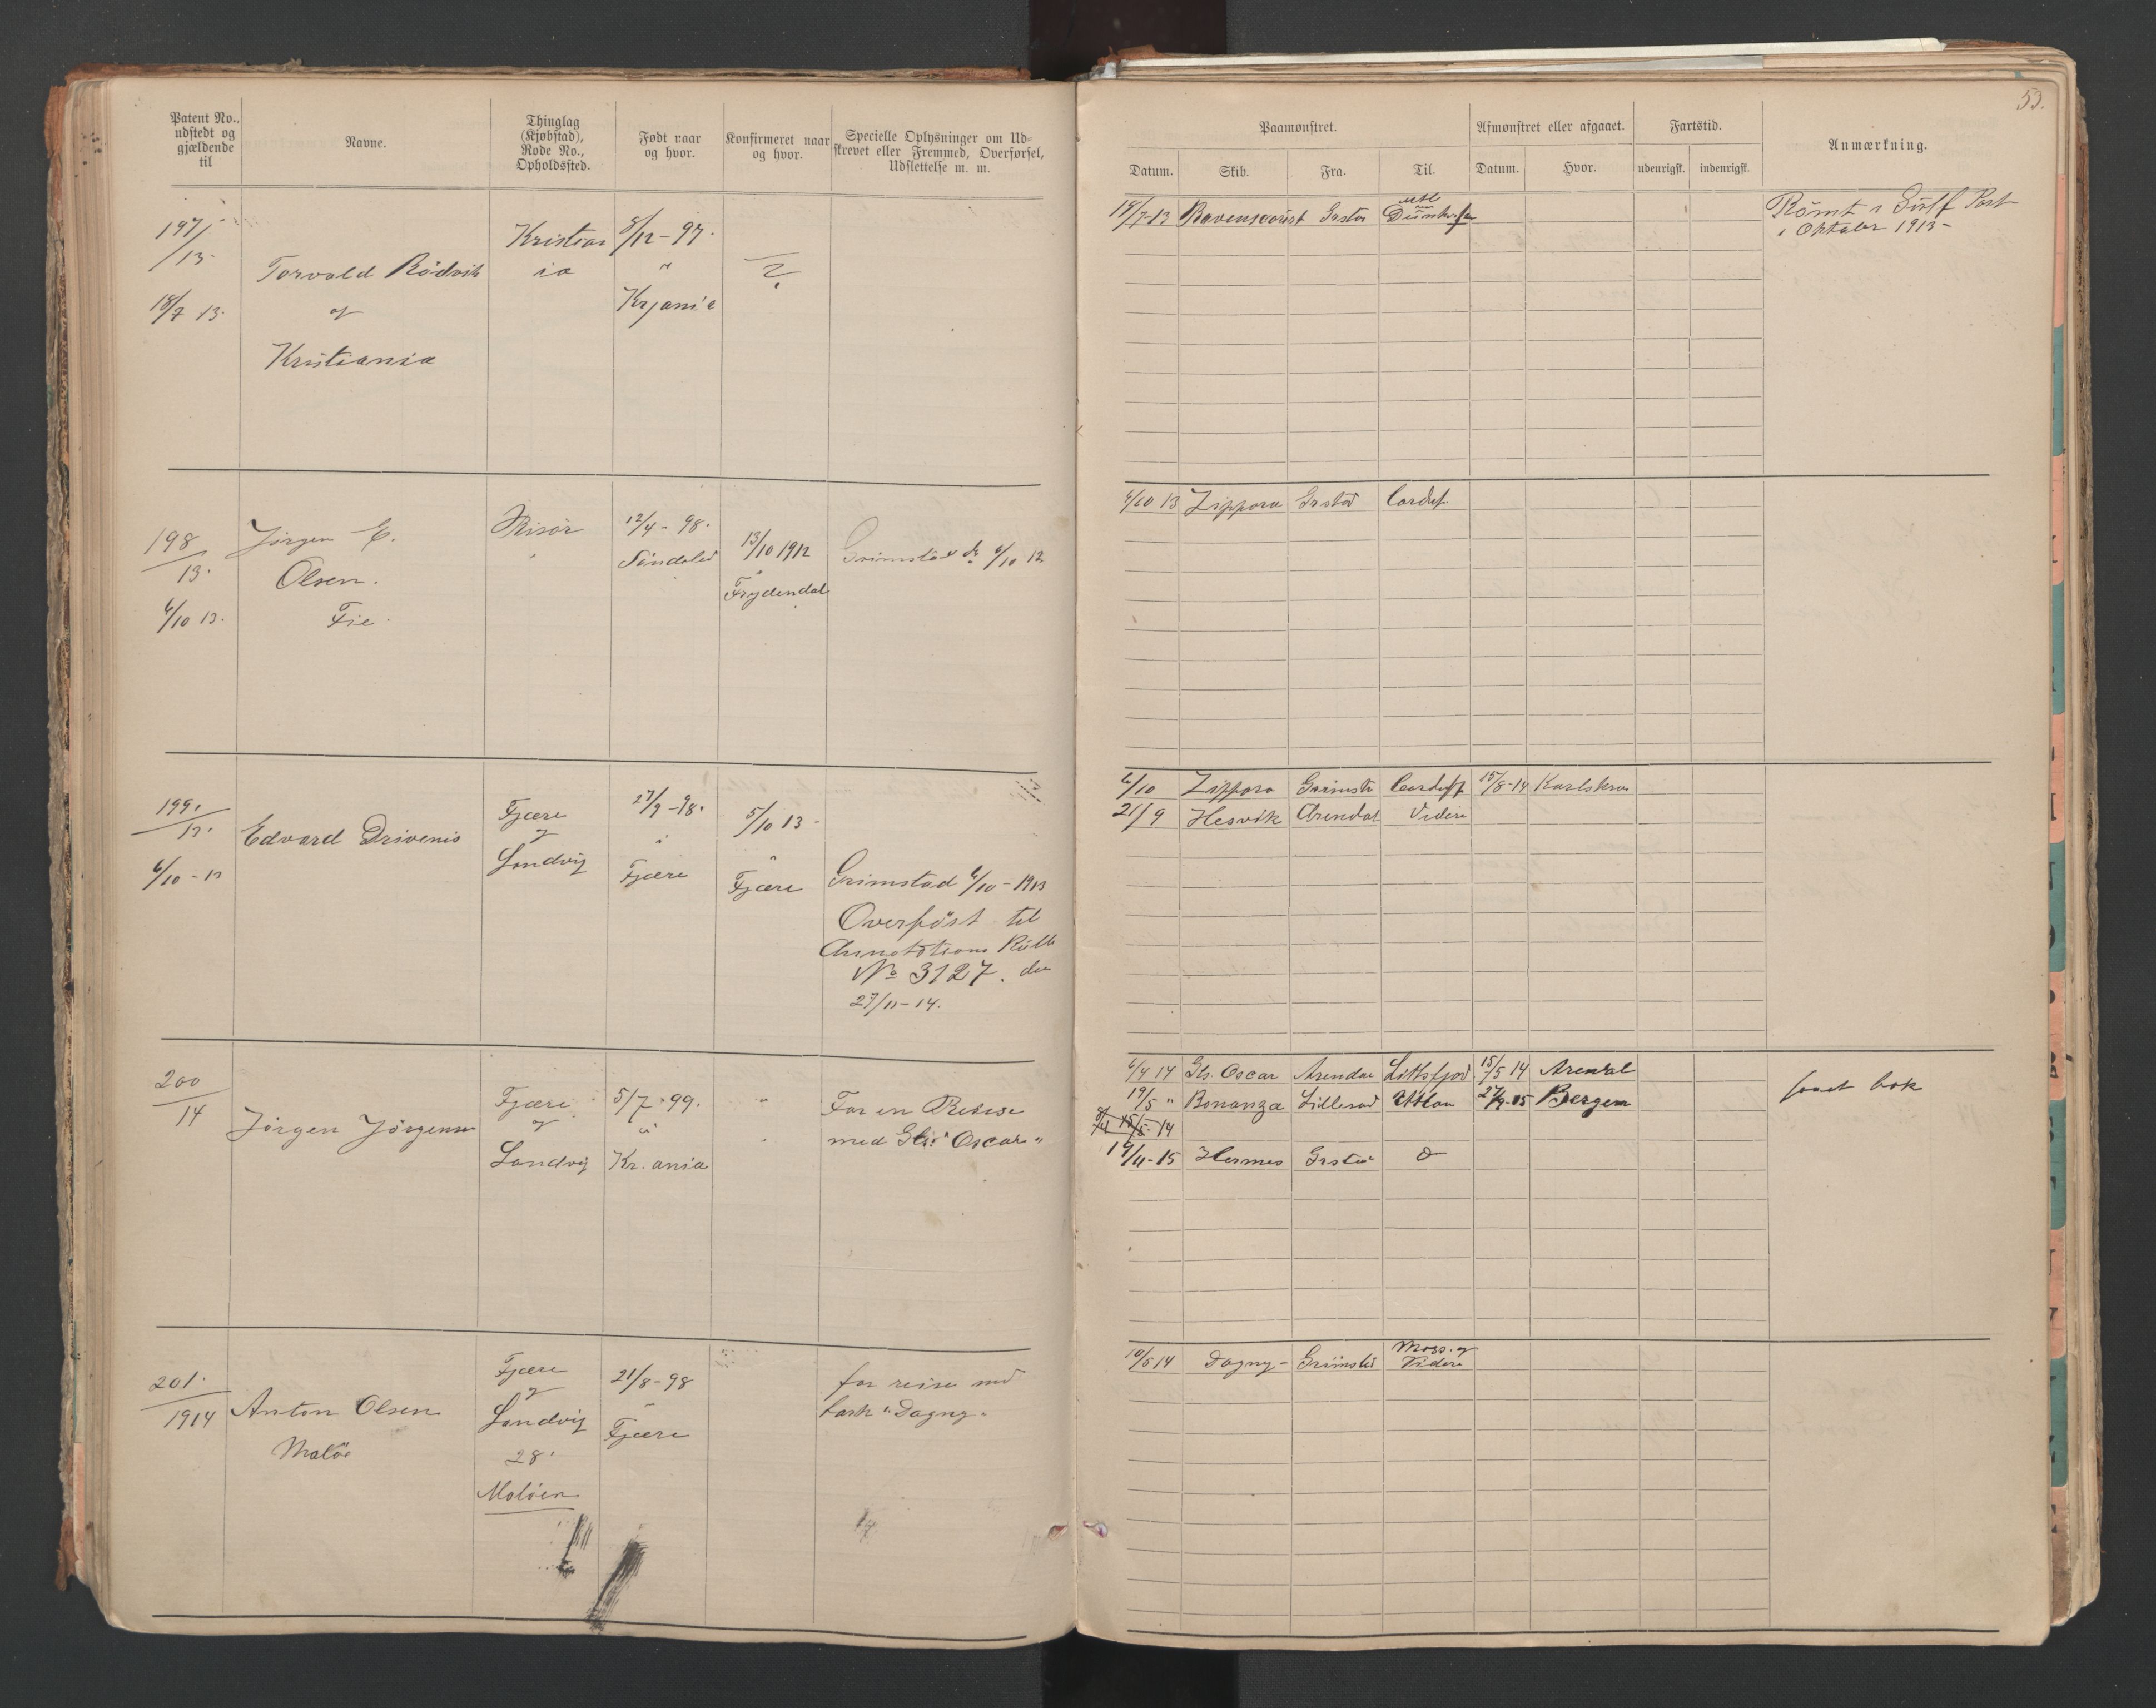 53.
Patent No., udstedt og gjældende til
Navne.
Thinglag (Kjøbstad), Rode No., Opholdssted.
Født naar og hvor.
Konfirmeret naar og hvor.
Specielle Oplysninger om Udskrevet eller Fremmed, Overførsel, Udslettelse m. m.
Paamønstret.
Afmønstret eller afgaaet.
Fartstid.
Anmærkning.
Datum.
Skib.
Fra.
Til.
Datum.
Hvor.
udenrigsk.
indenrigsk.
197/
/13.
18/7 13.
Torvald Rödvik
af
Kristiania
Kristian
ia
8/12-97.
"
Krjania
?
18/7-13 Ravenscourt Grstad
Römt i Gulf Port
i Oktober 1913-
198
13.
6/10 13.
Jörgen E.
Olsen.
Fie.
Risör
12/4-98.
Söndeled
13/10 1912
"
Frydendal
Grimstad d. 6/10 13
6/10 13 Zippora Grstad Cardif.
199.
13.
6/10-13
Edvard Drivenis
Fjære
og
Landvig
27/9-98.
"
Fjære
5/10 13-
"
Fjære
Grimstad 6/10-1913
Overføst til
Annotations Rulle
No 3127. den
27/11-14.
6/10 Zippora Grimsta Cardiff 15/8-14 Karlskrona
21/9 Hesvik Arendal Videre
200
14
Jörgen Jörgensen
Fjære
og
Landvig
5/7-99.
"
Kr.ania
"
For en Reise
med Gls. "Oscar"
6/4 14 Gls. Oscar Arendal 15/5 14 Arendal
19/5 " Bonanza Lillesand Atlan 27/9-15 Bergen
15/5-14
19/11-15 Hermes Grstad
faaet bok
201.
1914
Anton Olsen
Malöe
Fjære
og
Landvig
28.
Malöen
21/8-98
"
Fjære
for reise med
bark "Dagny"
10/5 14 Dagny- Grimstd Moss. og
Videre